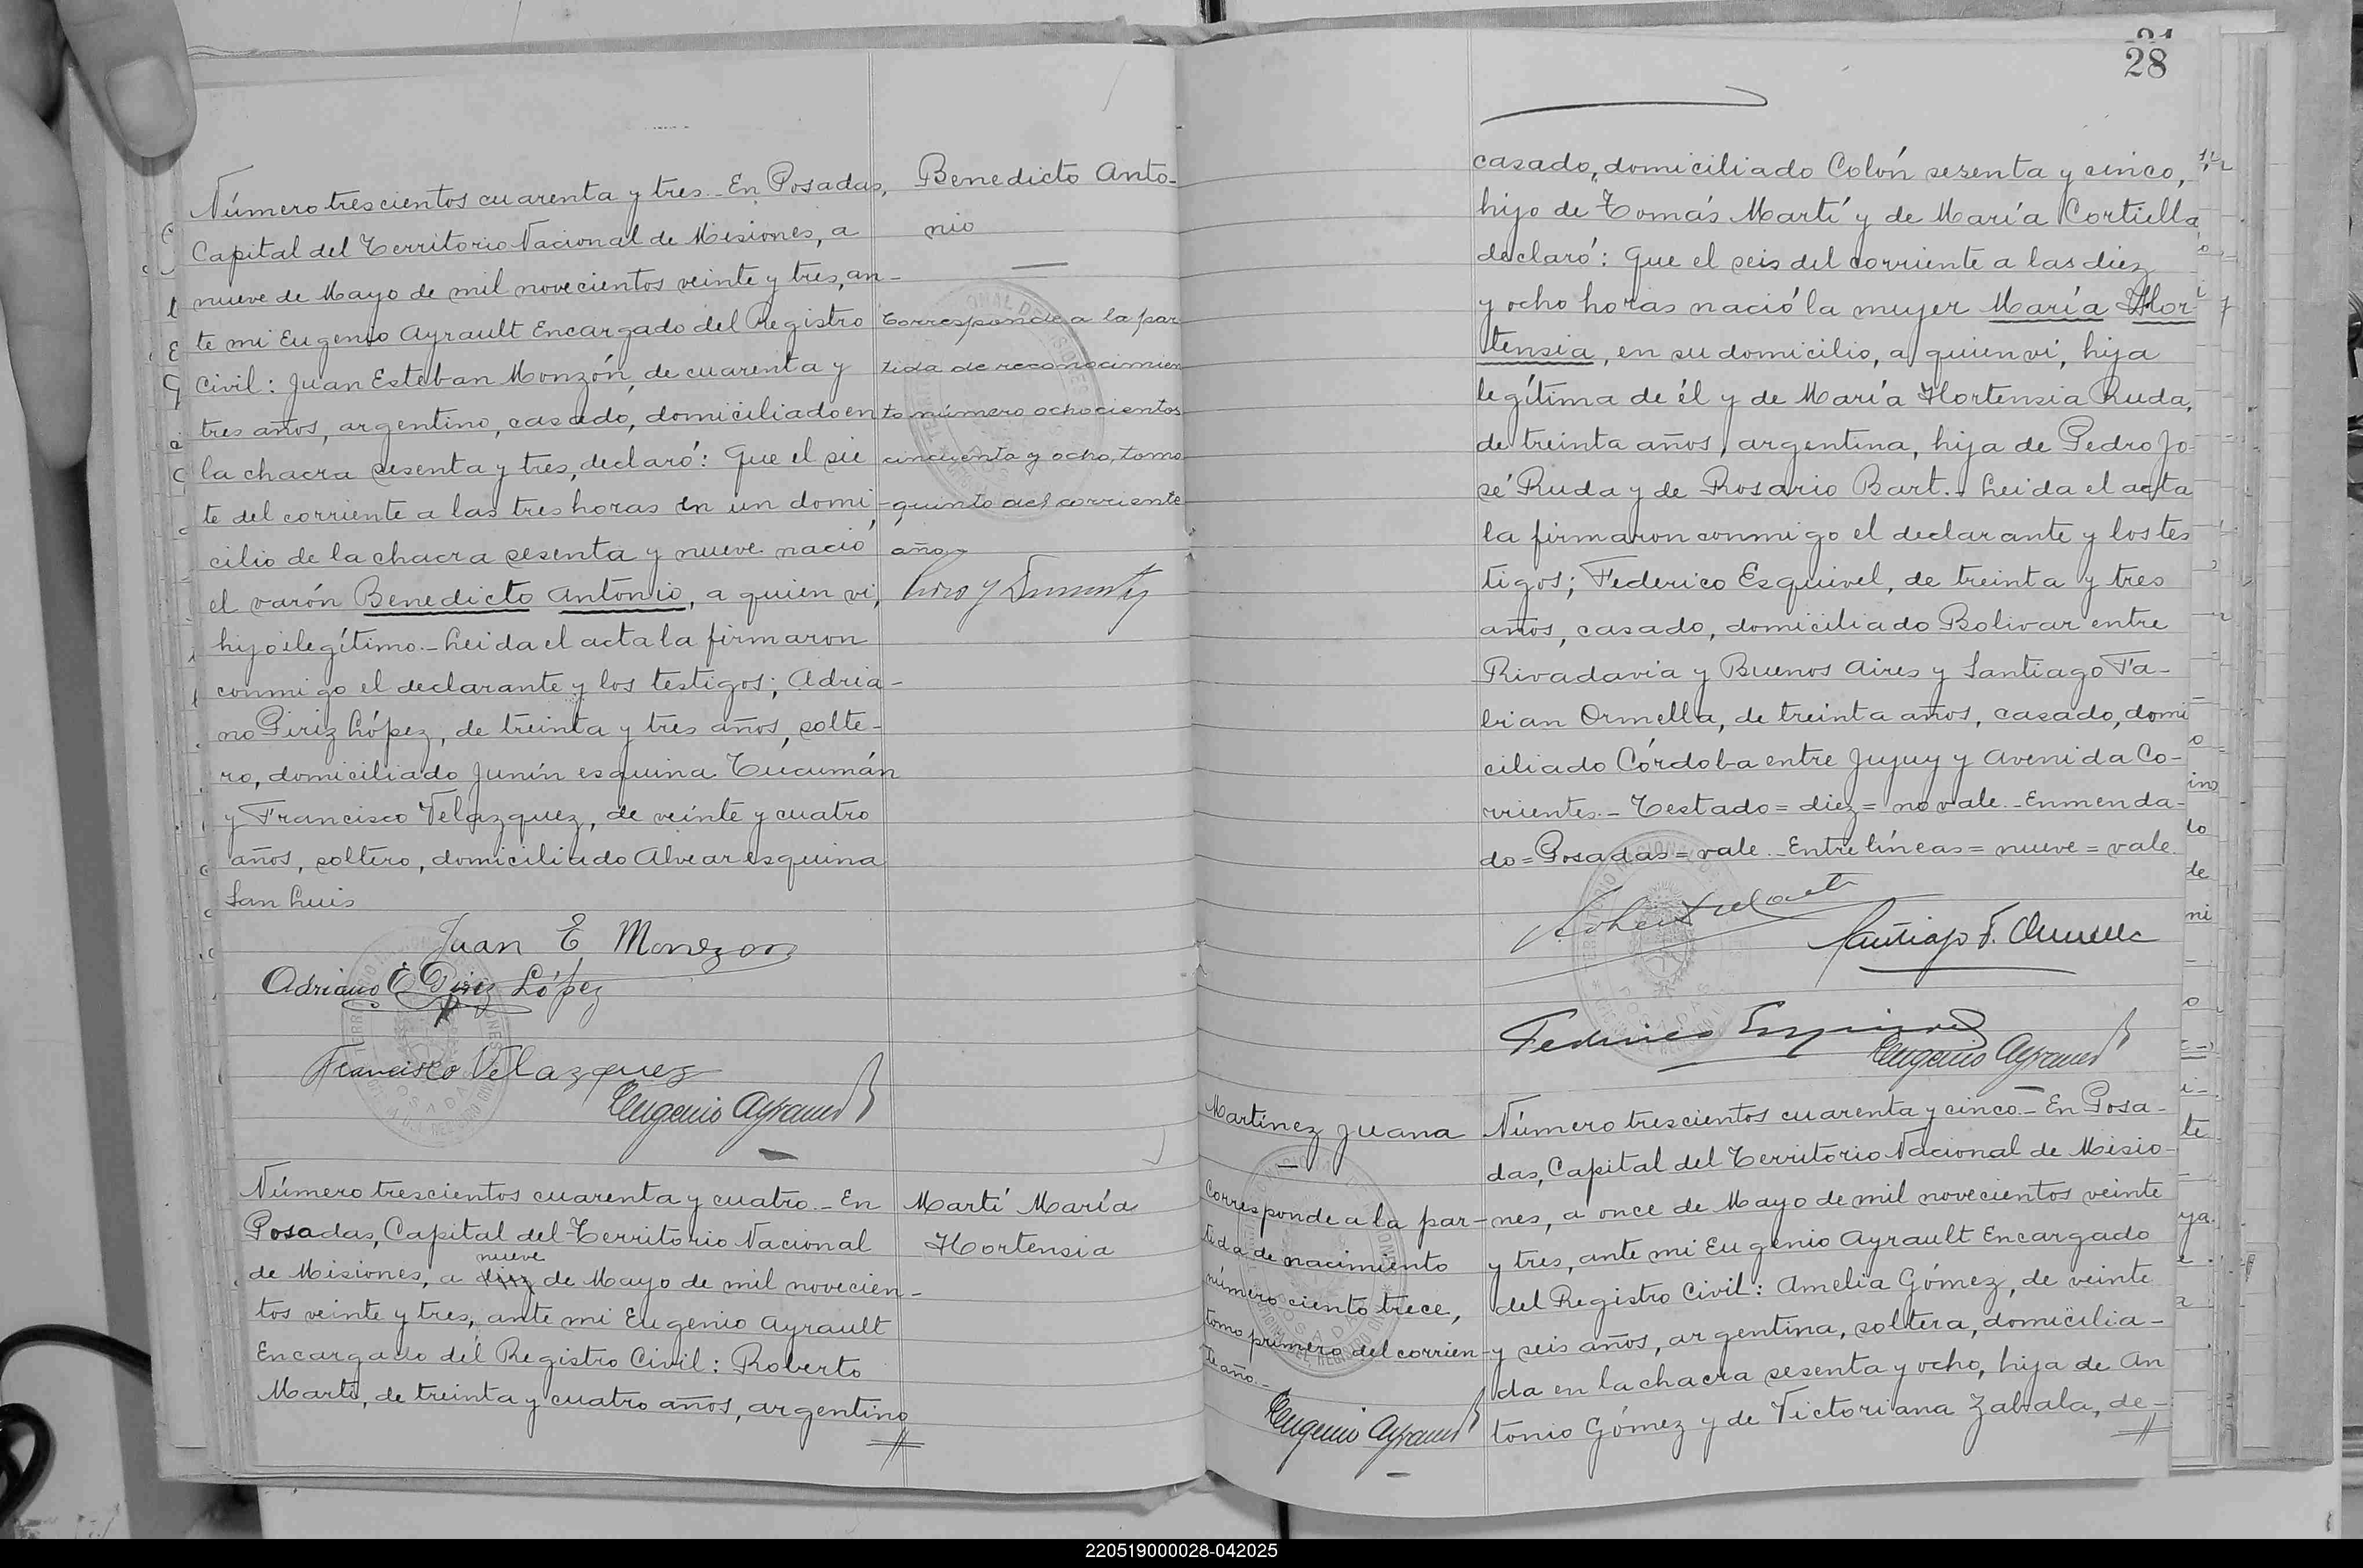 Número trescientos cuarenta y tres._ En Posadas,
Capital del Territorio Nacional de Misiones, a
nueve de Mayo de mil novecientos veinte y tres, an-
te mi Eugenio Ayrault Encargado del Registro
Civil: Juan Esteban Monzón, de cuarenta y
tres años, argentino, casado, domiciliado en
la chacra sesenta y tres, declaró: Que el sie
te del corriente a las tres horas en un domi-
cilio de la chacra sesenta y nueve nació
el varón Benedicto Antonio, a quien ví,
hijo ilegítimo._ Leida el acta la firmaron
conmigo el declarante y los testigos; Adria-
no Piriz López, de treinta y tres años, solte-
ro, domiciliado Junín esquina Tucumán
y Francisco Velazquez, de veinte y cuatro
años, soltero, domiciliado Alvear esquina
San Luis
Juan E Monzon
Adriano Piriz López
Francisco Velazquez
Eugenio Ayrault
Benedicto Anto-
nio
Corresponde a la par
tida de reconocimien
to número ochocientos
cincuenta y ocho, tomo
quinto del corriente
año
Número trescientos cuarenta y cuatro._ En
Posadas, Capital del Territorio Nacional
nueve
de Misiones, a diez de Mayo de mil novecien-
tos veinte y tres, ante mi Eugenio Ayrault
Encargado del Registro Civil: Roberto
Martí, de treinta y cuatro años, argentino
Martí María
Hortensia
28
casado, domiciliado Colón sesenta y cinco,
hijo de Tomás Martí y de María Cortiella
declaró: Que el seis del corriente a las diez
y ocho horas nació la mujer María Hor-
tensia, en su domicilio, a quien ví, hija
legítima de él y de María Hortensia Ruda,
de treinta años, argentina, hija de Pedro Jo-
sé Ruda y de Rosario Bart._ Leida el acta
la firmaron conmigo el declarante y los tes
tigos; Federico Esquivel, de treinta y tres
años, casado, domiciliado Bolivar entre
Rivadavia y Buenos Aires y Santiago Fa-
bian Ormella, de treinta años, casado, domi
ciliado Córdoba entre Jujuy y Avenida Co-
rrientes._ Testado = diez = no vale._ Enmenda-
do = Posadas = vale._ Entre líneas = nueve = vale.
Santiago F. Ormella
Federico Esquivel
Eugenio Ayrault
Martínez Juana
Corresponde a la par-
tida de nacimiento
número ciento trece,
tomo primero del corrien-
te año._
Eugenio Ayrault
Número trescientos cuarenta y cinco._ En Posa-
das, Capital del Territorio Nacional de Misio-
nes, a once de Mayo de mil novecientos veinte
y tres, ante mi Eugenio Ayrault Encargado
del Registro Civil: Amelia Gómez, de veinte
y seis años, argentina, soltera, domicilia-
da en la chacra sesenta y ocho, hija de An
tonio Gómez y de Victoriana Zabala, de-
220519000028-042025